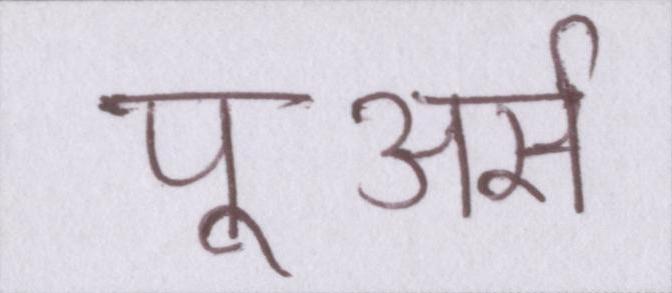 पूअर्स